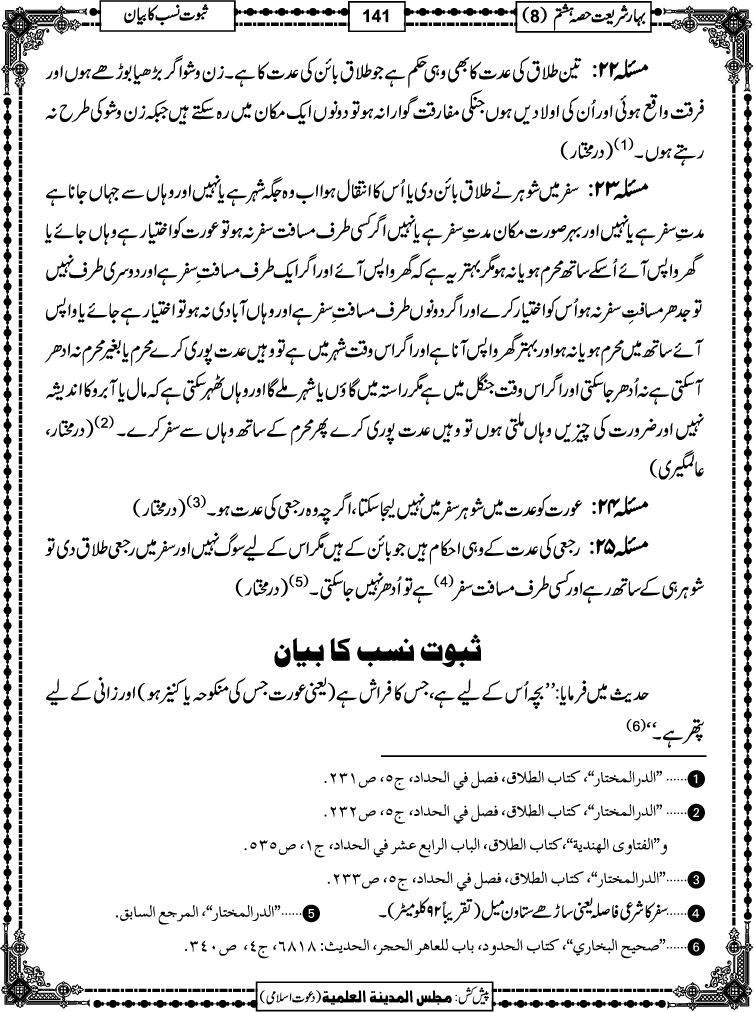 بہار شریعت حصہ ہشتم (8)
141
ثبوت نسب کا بیان
مسئلہ ۲۲: تین طلاق کی عدت کا بھی وہی حکم ہے جو طلاق بائن کی عدت کا ہے۔ زن و شو اگر بڑھیا بوڑھے ہوں اور
فرقت واقع ہوئی اور اُن کی اولادیں ہوں جنکی مفارقت گوارا نہ ہو تو دونوں ایک مکان میں رہ سکتے ہیں جبکہ زن و شو کی طرح نہ
رہتے ہوں۔(1) (درمختار)
مسئلہ ۲۳: سفر میں شوہر نے طلاق بائن دی یا اُس کا انتقال ہوا اب وہ جگہ شہر ہے یا نہیں اور وہاں سے جہاں جانا ہے
مدتِ سفر ہے یا نہیں اور بہر صورت مکان مدتِ سفر ہے یا نہیں اگر کسی طرف مسافت سفر نہ ہو تو عورت کو اختیار ہے وہاں جائے یا
گھر واپس آئے اُسکے ساتھ محرم ہو یا نہ ہو مگر بہتر یہ ہے کہ گھر واپس آئے اور اگر ایک طرف مسافتِ سفر ہے اور دوسری طرف نہیں
تو جدھر مسافتِ سفر نہ ہو اُس کو اختیار کرے اور اگر دونوں طرف مسافتِ سفر ہے اور وہاں آبادی نہ ہو تو اختیار ہے جائے یا واپس
آئے ساتھ میں محرم ہو یا نہ ہو اور بہتر گھر واپس آنا ہے اور اگر اس وقت شہر میں ہے تو وہیں عدت پوری کرے محرم یا بغیر محرم نہ ادھر
آسکتی ہے نہ اُدھر جاسکتی اور اگر اس وقت جنگل میں ہے مگر راستہ میں گاؤں یا شہر ملے گا اور وہاں ٹھہر سکتی ہے کہ مال یا آبرو کا اندیشہ
نہیں اور ضرورت کی چیزیں وہاں ملتی ہوں تو وہیں عدت پوری کرے پھر محرم کے ساتھ وہاں سے سفر کرے۔(2) (درمختار،
عالمگیری)
مسئلہ ۲۴: عورت کو عدت میں شوہر سفر میں نہیں لیجا سکتا، اگرچہ وہ رجعی کی عدت ہو۔(3) (درمختار)
مسئلہ ۲۵: رجعی کی عدت کے وہی احکام ہیں جو بائن کے ہیں مگر اس کے لیے سوگ نہیں اور سفر میں رجعی طلاق دی تو
شوہر ہی کے ساتھ رہے اور کسی طرف مسافت سفر(4) ہے تو اُدھر نہیں جاسکتی۔(5) (درمختار)
ثبوت نسب کا بیان
حدیث میں فرمایا: ’’بچہ اُس کے لیے ہے، جس کا فراش ہے (یعنی عورت جس کی منکوحہ یا کنیز ہو) اور زانی کے لیے
پتھر ہے۔‘‘(6)
1...... "الدرالمختار"، کتاب الطلاق، فصل في الحداد، ج۵، ص۲۳۱.
2...... "الدرالمختار"، کتاب الطلاق، فصل في الحداد، ج۵، ص۲۳۲.
و"الفتاوی الهندية"، کتاب الطلاق، الباب الرابع عشر في الحداد، ج۱، ص۵۳۵.
3...... "الدرالمختار"، کتاب الطلاق، فصل في الحداد، ج۵، ص۲۳۳.
4...... سفر کا شرعی فاصلہ یعنی ساڑھے ستاون میل (تقریباً ۹۲ کلومیٹر)۔ 5...... "الدرالمختار"، المرجع السابق.
6...... "صحيح البخاري"، كتاب الحدود، باب للعاهر الحجر، الحديث: ۶۸۱۸، ج۴، ص۳۴۰.
پیش کش: مجلس المدینة العلمیة (دعوت اسلامی)